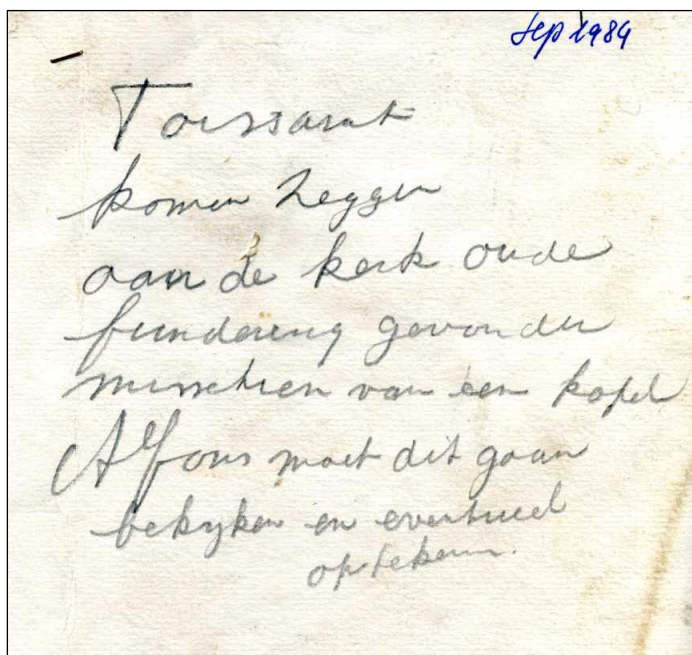 Sep 1984
Toussaint
komen zeggen
aan de kerk oude
fundering gevonden
misschien van een kapel
Alfons moet dit gaan
bekijken en eventueel
optekenen.